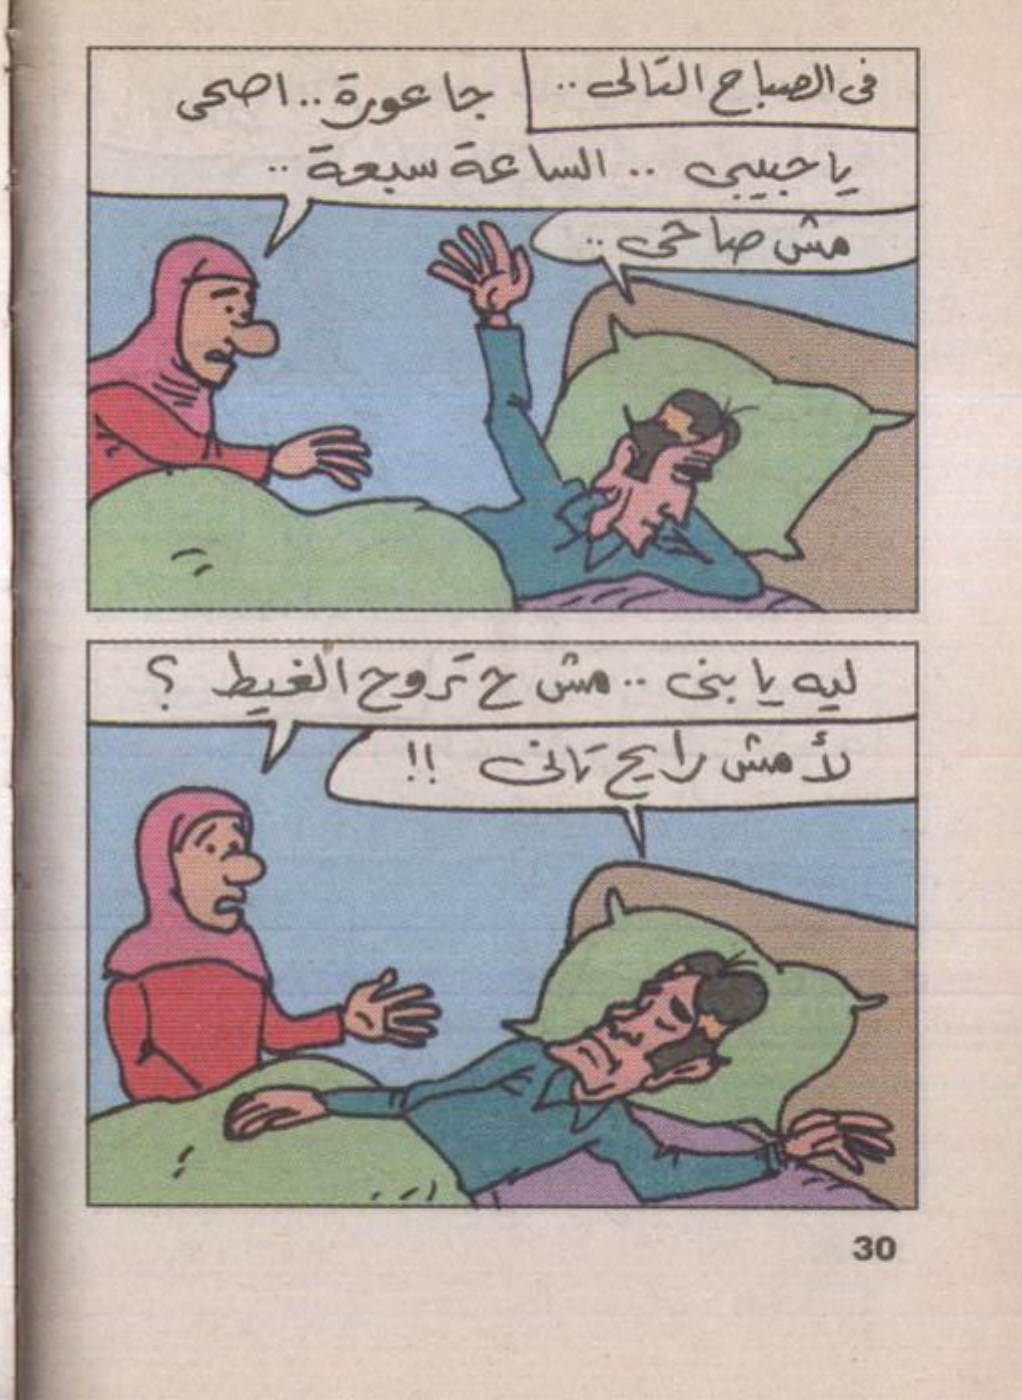 فى الصباح التالى ..
جا عورة .. اصحى
يا حبيبى .. الساعة سبعة ..
مش صاحى ..
ليه يا بنى .. مش ح تروح الغيط ؟
لأ مش رايح تانى !!
30